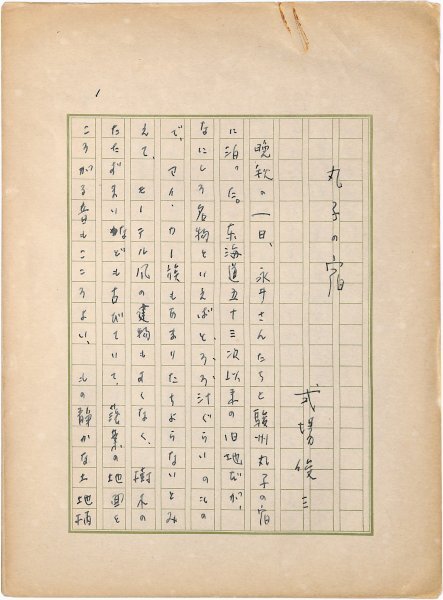 1
丸子の宿
式場俊三
晩秋の一日、永井さんたちと駿州丸子の宿
に泊った。東海道五十三次以来の旧地だが、
なにしろ名物といえば、とろろ汁ぐらいのもの
で、マイ・カー族もあまりたちよらないとみ
えて、ホテル風の建物もまくなく、樹木の
たたずまいなども古びていて、落葉の地面を
ころがる音もこころよい。この静かな土地柄